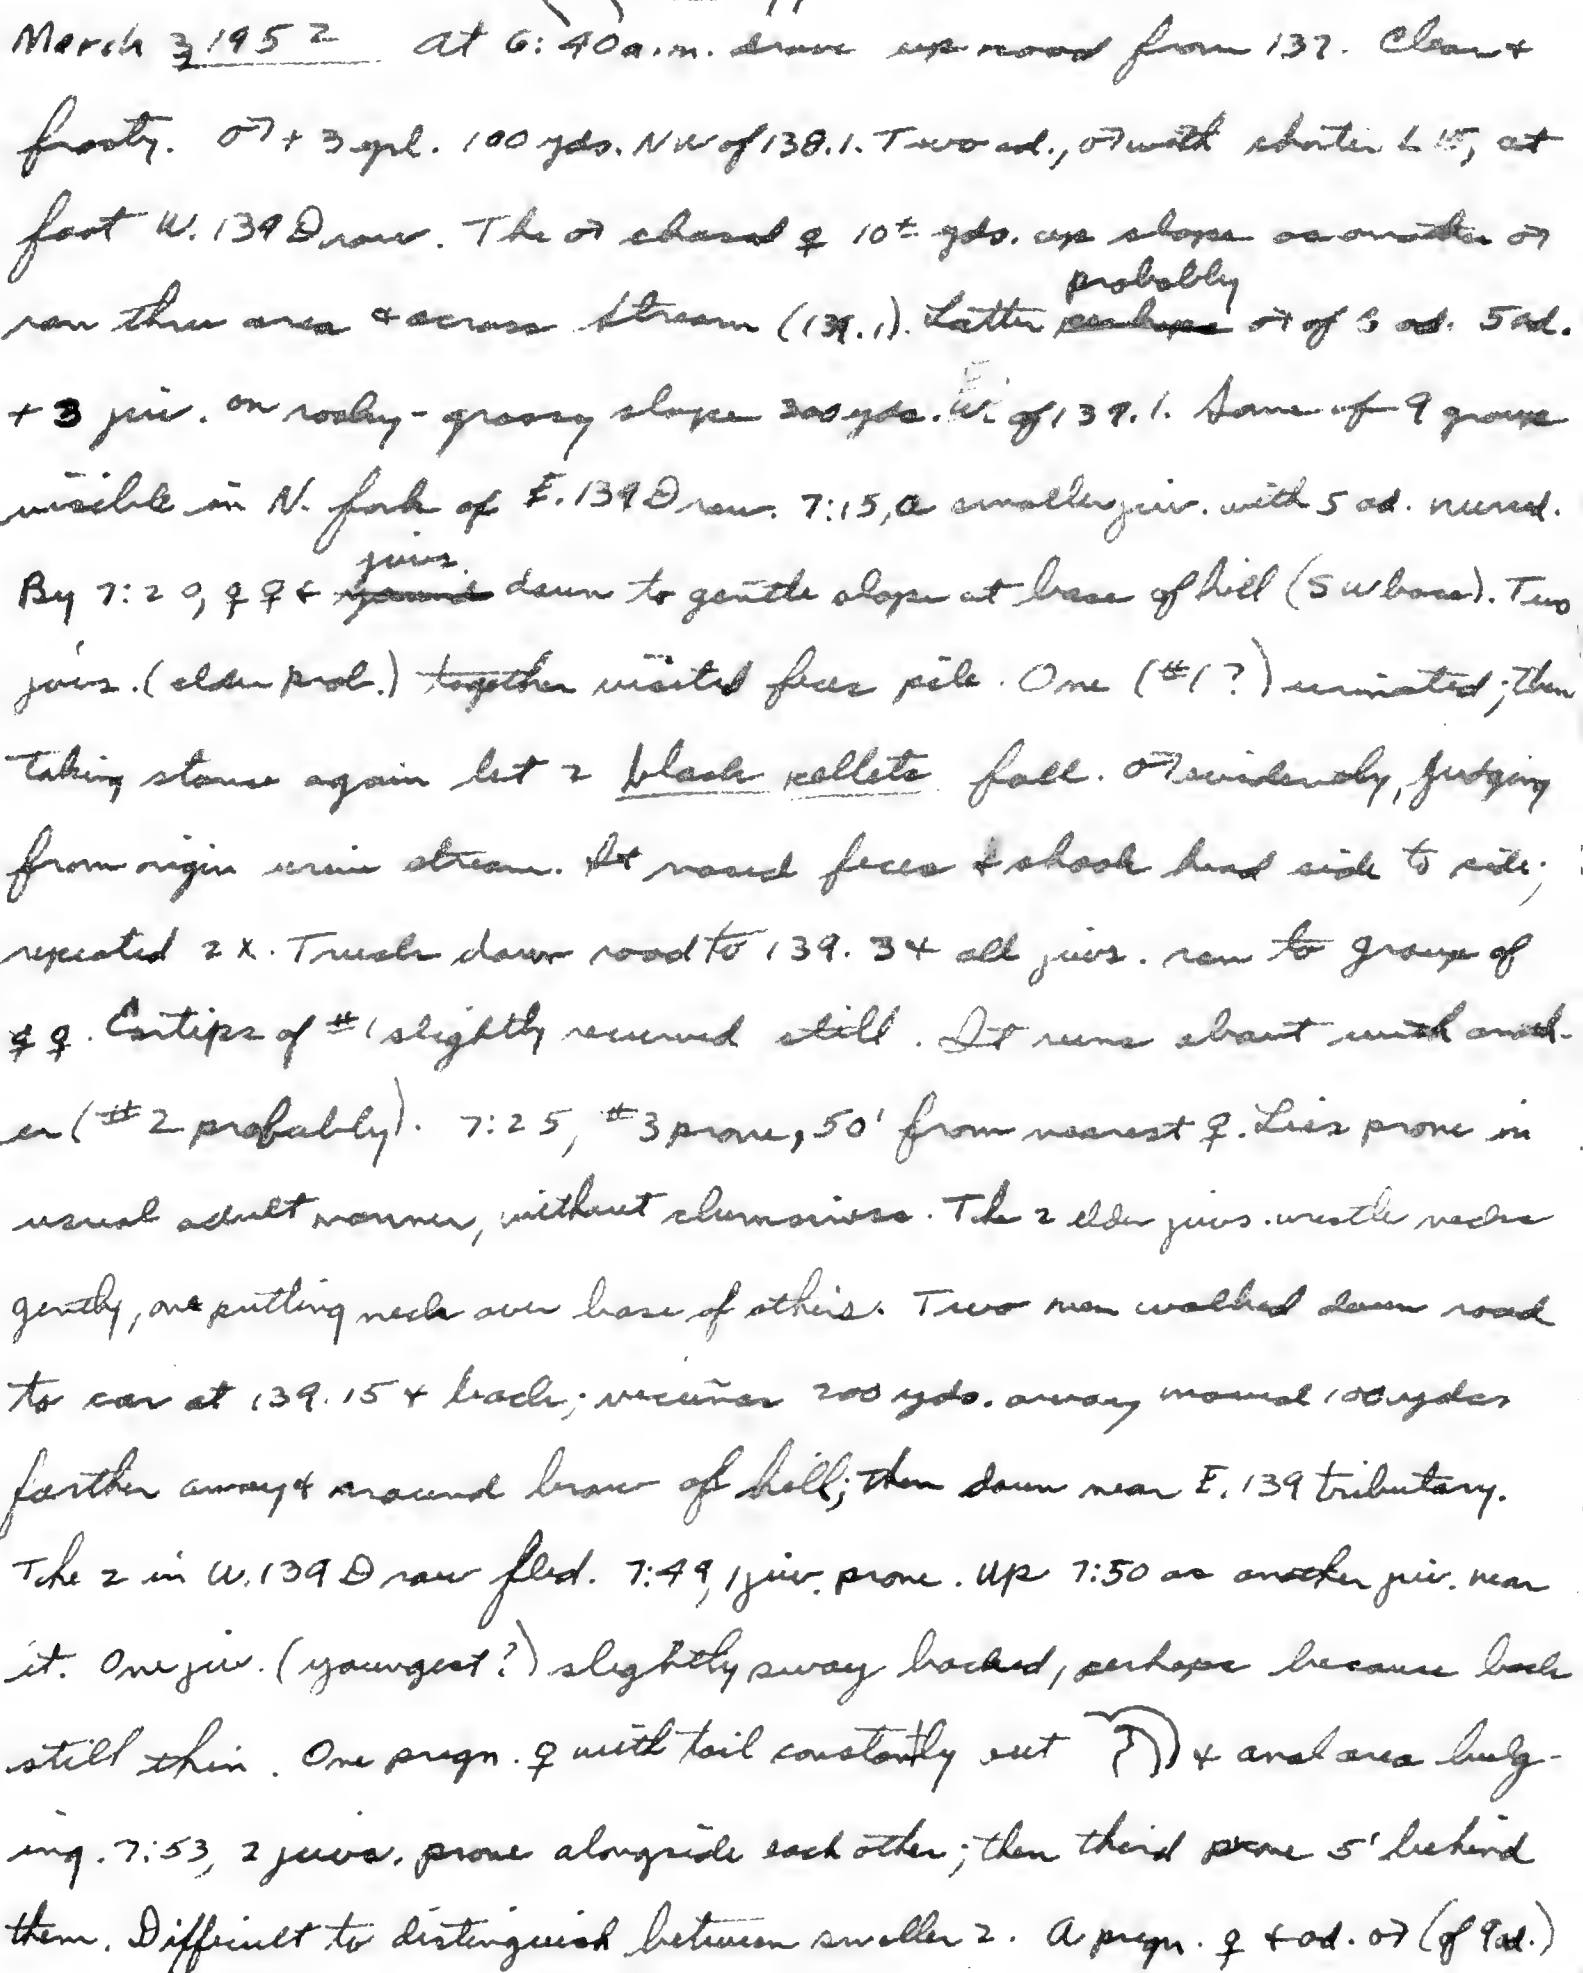 March 3 1952 At 6:40 a.m. drove up road from 137. Clear &
frosty. ♂ + 3 gpl. 100 yds. NW of 138.1. Two ad., ♂ with shorter L , at
foot W. 139 Draw. The ♂ chased ♀ 10± yds. up slope as another ♂
probably
ran thru area & across stream (139.1). Latter perhaps ♂ of 5 ad. 5 ad.
+ 3 juv. on rocky-grassy slope 300 yds. of 139.1. Some of 9 group
visible in N. fork of E. 139 Draw. 7:15, a smaller juv. with 5 ad. nursed.
juvs.
By 7:20, ♀♀ & young down to gentle slope at base of hill (SW base). Two
juvs. (elder prob.) together visited feces pile. One (#1?) urinated; then
taking stance again let 2 black pellets fall. ♂ evidently, judging
from origin urine stream. It nosed feces & shook head side to side;
repeated 2 x. Truck down road to 139.3 & all juvs. ran to group of
♀♀. Eartips of #1 slightly recurved still. It runs about with anoth-
er (#2 probably). 7:25, #3 prone, 50' from nearest ♀. Lies prone in
usual adult manner, without clumsiness. The 2 elder juvs. wrestle necks
gently, one putting neck over base of others. Two men walked down road
to car at 139.15 & back; vicuñas 200 yds. away moved 100 yds
farther away & around brow of hill; then down near E. 139 tributary.
The 2 in W. 139 Draw fled. 7:49, 1 juv. prone. Up 7:50 as another juv. near
it. One juv. (youngest?) slightly sway backed, perhaps because back
still thin. One pregn. ♀ with tail constantly out & anal area bulg-
ing. 7:53, 2 juvs. prone alongside each other; then third prone 5' behind
them. Difficult to distinguish between smaller 2. A pregn. ♀ & ad. ♂ (of 9 ad.)